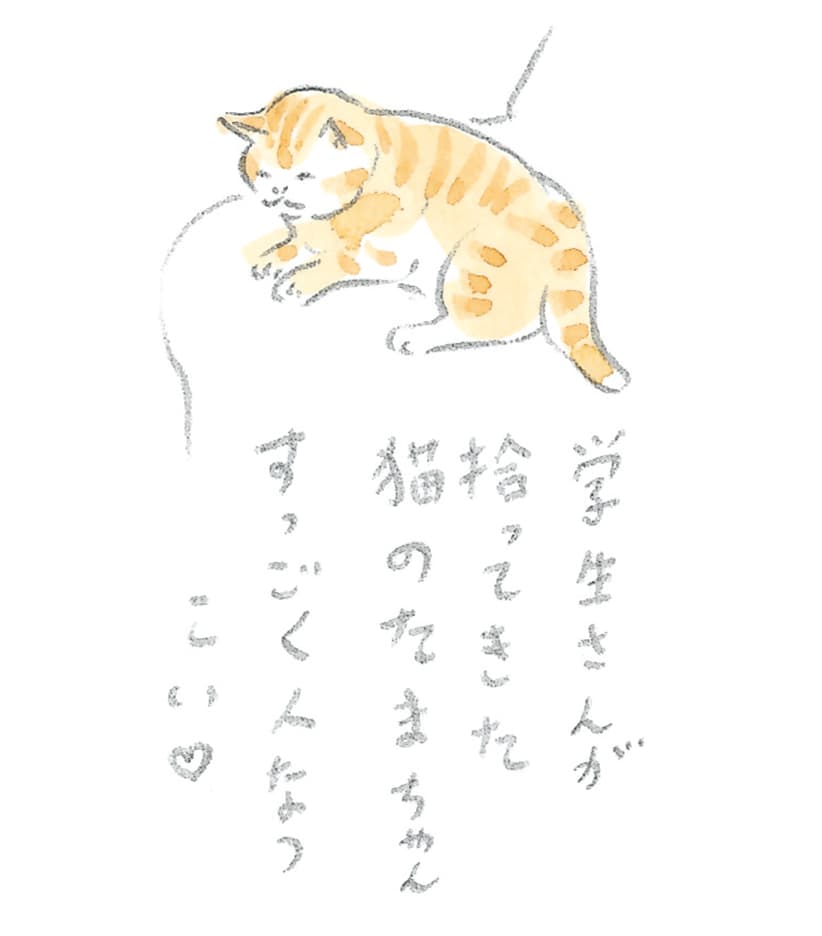 学生さんが
拾ってきた
猫のたまちゃん
すっごく人なつ
こい♡